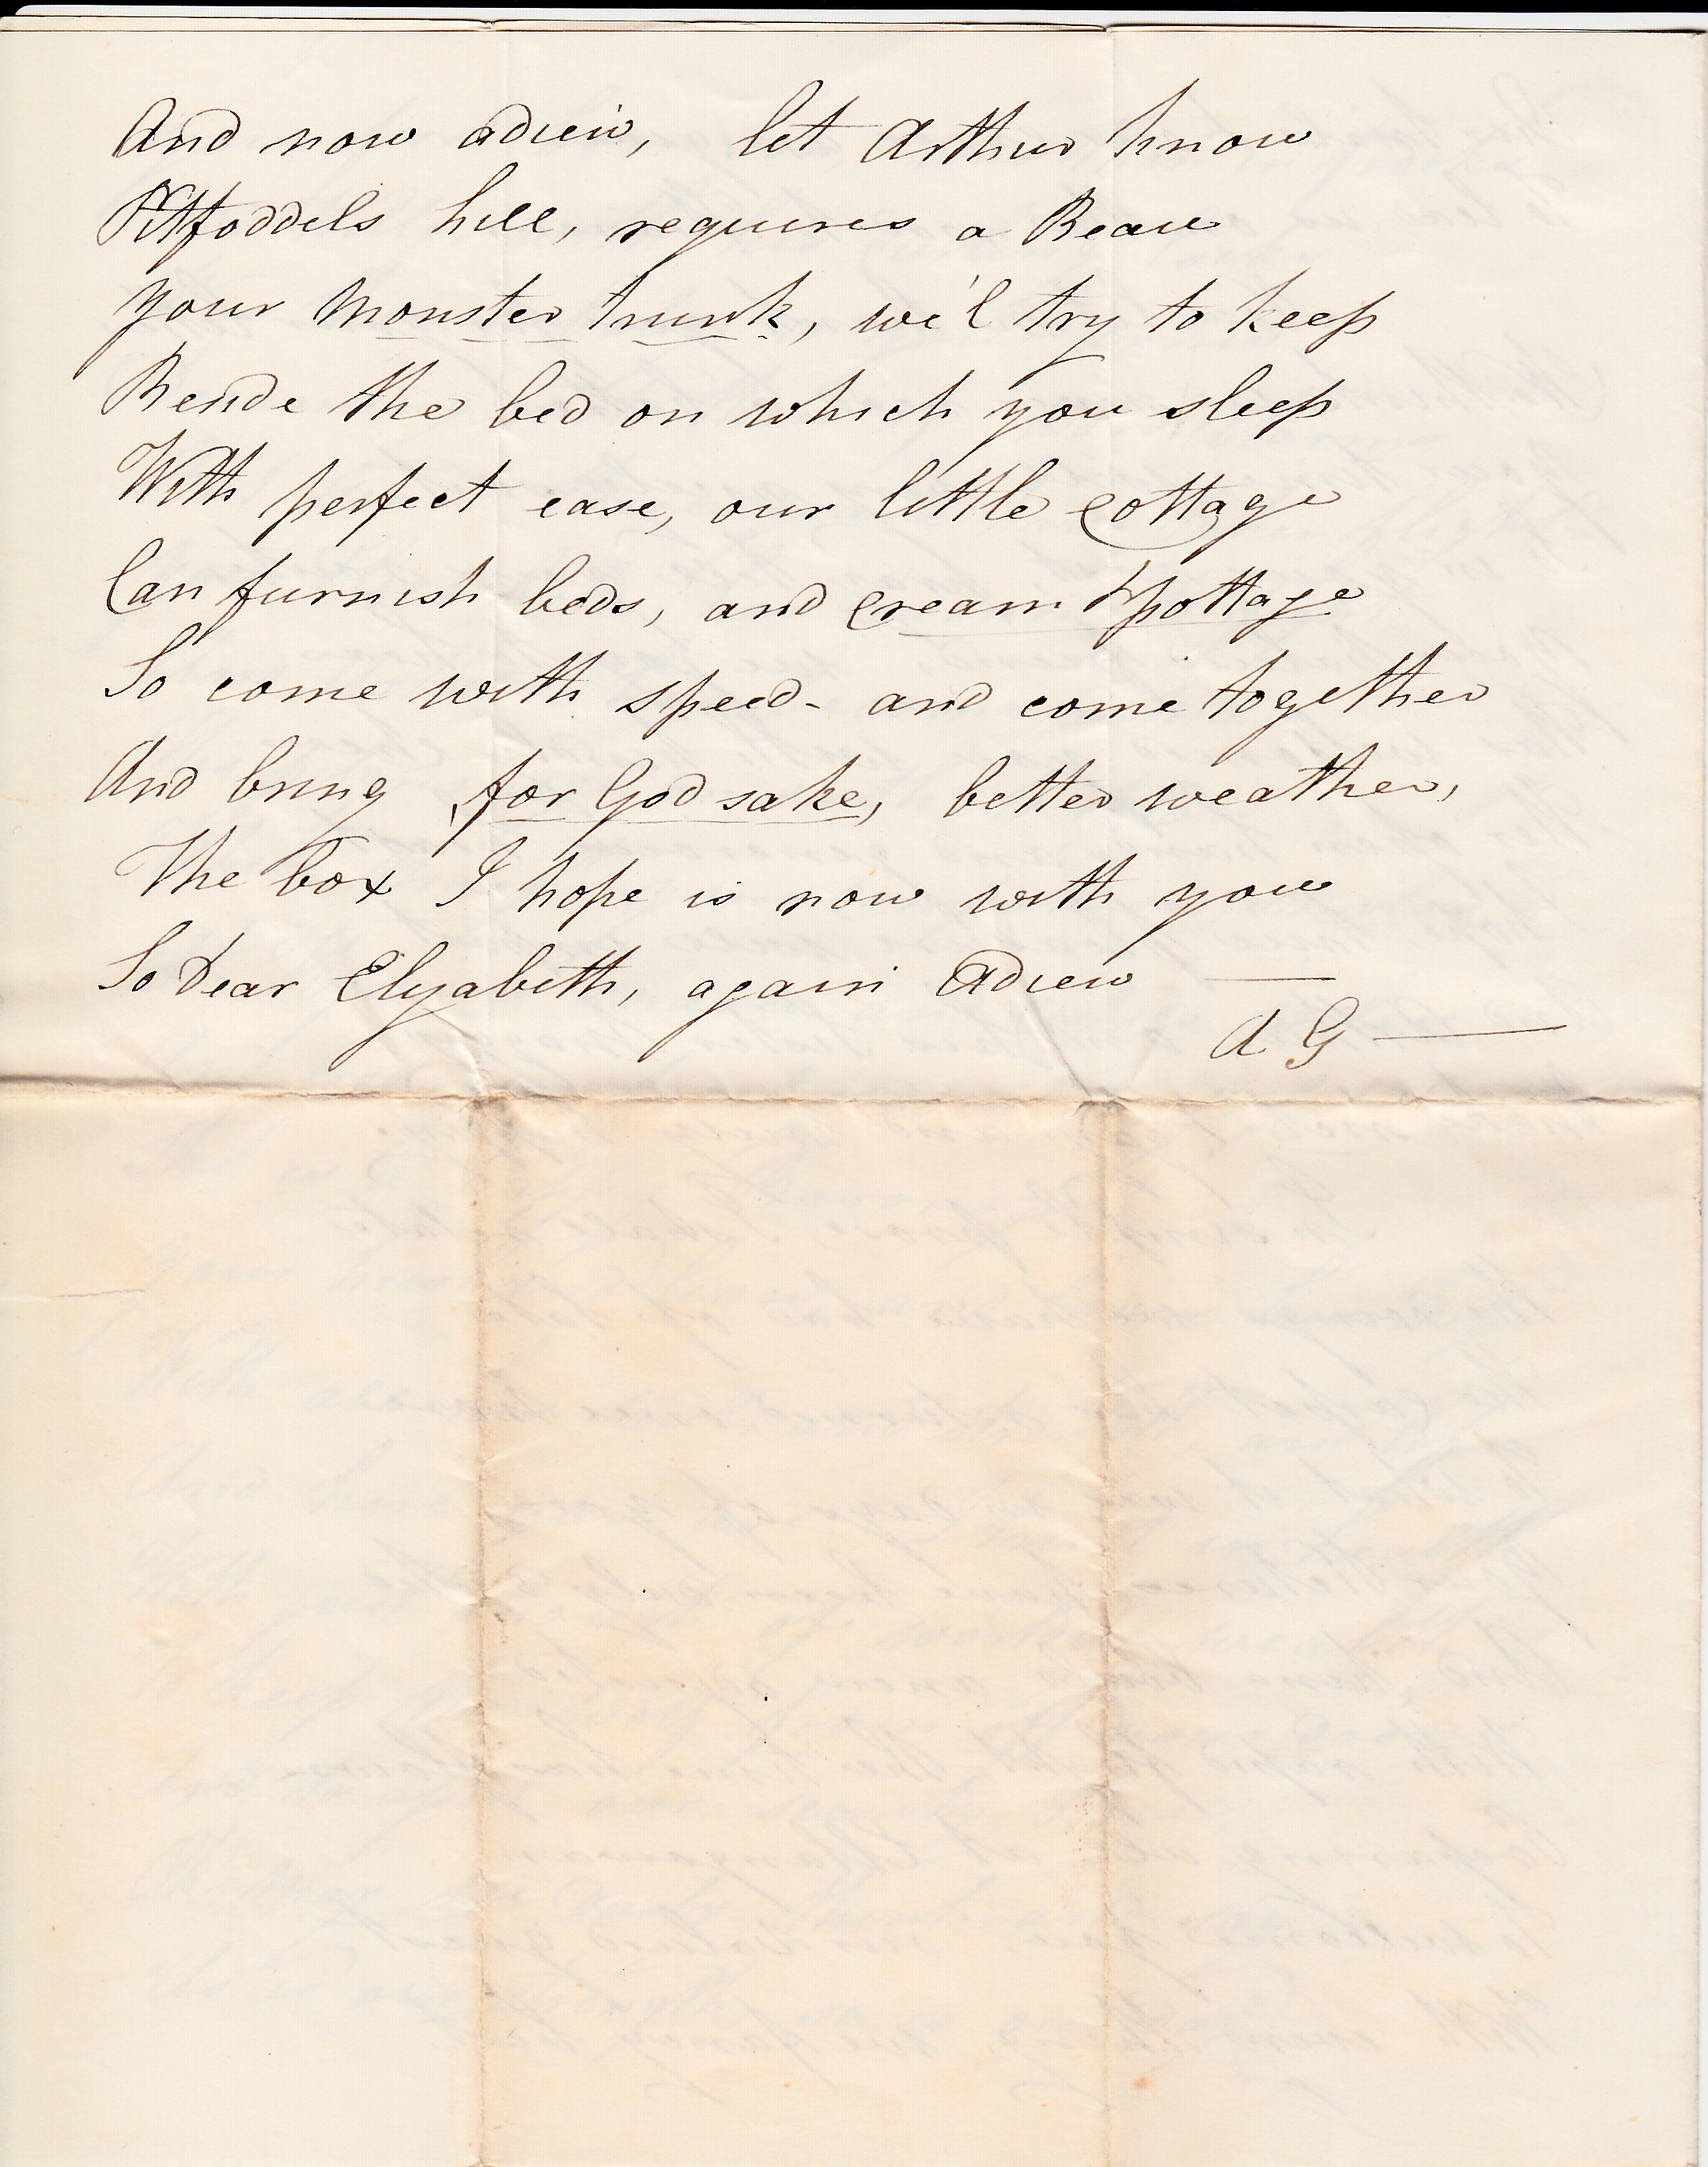 And now adieu, let Arthur know
Pitfoddels hill, requires a Beau
Your Monster trunk, we'l try to keep
Beside the bed on which you sleep
With perfect ease, our little cottage
Can furnish beds, and cream & pottage
So come with speed - and come together
And bring for God sake, better weather,
The box I hope is now with you
So Dear Elizabeth, again Adieu —
A G —